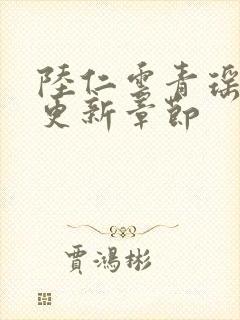 陸仁雲青瑶
更新章節
賈鴻彬